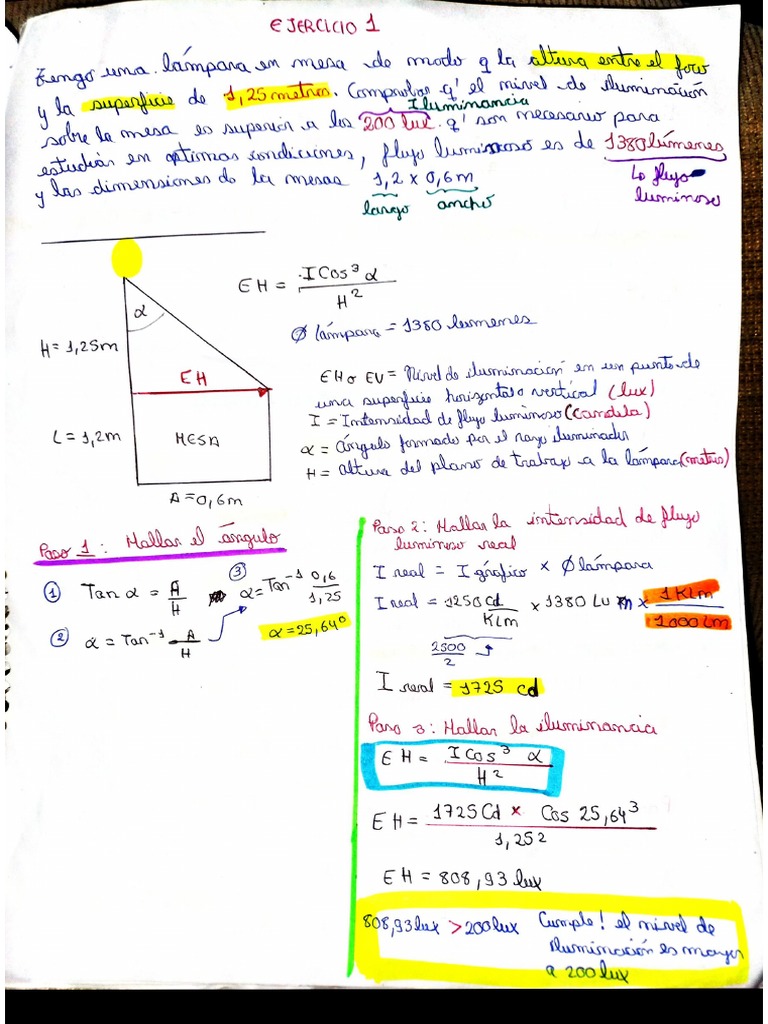 EJERCICIO 1
Tengo una lámpara en mesa de modo q la altura entre el foco
y la superficie de 1,25 metros. Comprobar q' el nivel de iluminación
Iluminancia
sobre la mesa es superior a los 200 lux q' son necesario para
estudiar en optimas condiciones, flujo luminoso es de 1380 lúmenes
y las dimensiones de la mesas 1,2 x 0,6 m
Lo flujo
luminoso
largo ancho
α
H = 1,25m
EH
L = 1,2m
MESA
A = 0,6m
EH = I Cos³ α / H²
Ø lámpara = 1380 lumenes
EH o EV = Nivel de iluminación en un punto de
una superficie horizontal o vertical (lux)
I = Intensidad de flujo luminoso (candela)
α = ángulo formado por el rayo iluminador
H = altura del plano de trabajo a la lámpara (metros)
Paso 1: Hallar el ángulo
① Tan α = A / H
② α = Tan⁻¹ A / H
③ α = Tan⁻¹ 0,6 / 1,25
α = 25,64°
Paso 2: Hallar la intensidad de flujo
luminoso real
I real = I gráfico x Ø lámpara
I real = 1250 Cd / KLm x 1380 Lum x 1 KLm / 1000 Lm
2500 / 2
I real = 1725 Cd
Paso 3: Hallar la iluminancia
EH = I Cos³ α / H²
EH = 1725 Cd x Cos 25,64³ / 1,25²
EH = 808,93 lux
808,93 lux > 200 lux Cumple! el nivel de
iluminación es mayor
a 200 lux